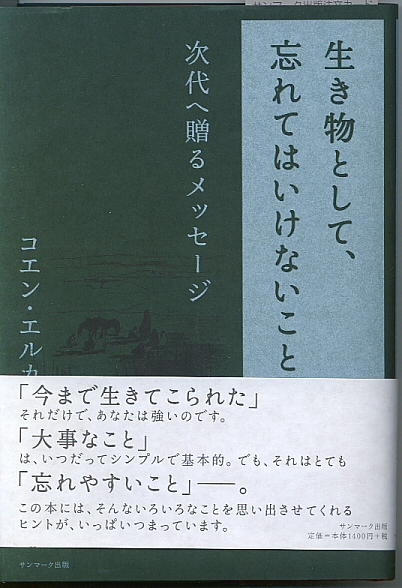 サンマーク出版注文カード
生き物として、
忘れてはいけないこと
次代へ贈るメッセージ
コエン・エルカ
「今まで生きてこられた」
それだけで、あなたは強いのです。
「大事なこと」
は、いつだってシンプルで基本的。でも、それはとても
「忘れやすいこと」——。
この本には、そんないろいろなことを思い出させてくれる
ヒントが、いっぱいつまっています。
サンマーク出版
定価=本体1400円+税
サンマーク出版